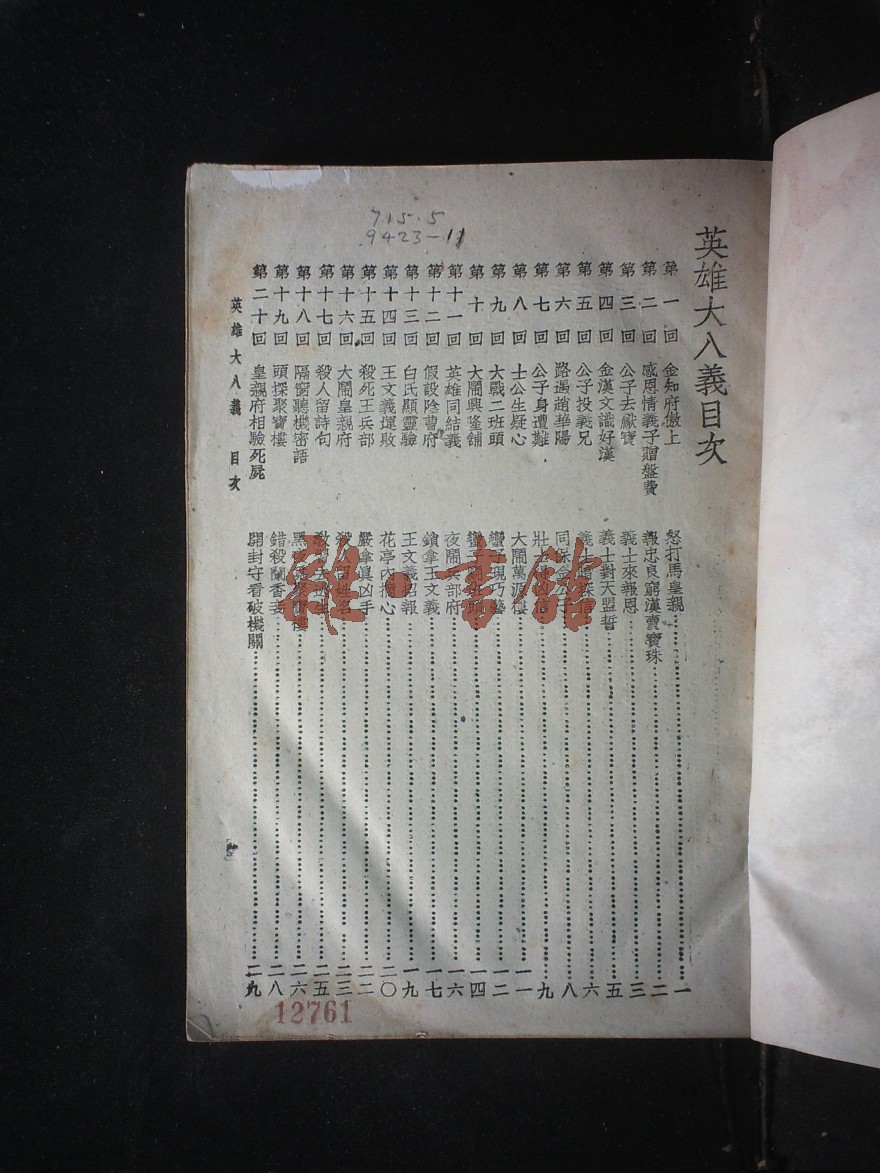 715.5
9423-11
英雄大八義目次
第一回 金知府傲上 怒打馬皇親 一
第二回 感恩情義子贈盤費 報忠良窮漢賣寶珠 二
第三回 公子去獻寶 義士來報恩 三
第四回 金漢文識好漢 義士對天盟誓 五
第五回 公子投義兄 義士 探信 六
第六回 路遇趙華陽 同 公子 八
第七回 公子身遭難 壯士 凶信 九
第八回 士公生疑心 大鬧萬源樓 一一
第九回 大戰二班頭 蠻子現巧藝 一二
第十回 大鬧興隆舖 蠻子 班頭 一四
第十一回 英雄同結義 夜鬧兵部府 一六
第十二回 假設陰曹府 鎖拿王文義 一七
第十三回 白氏顯靈驗 王文義招報 一九
第十四回 王文義運敗 花亭內摘心 二〇
第十五回 殺死王兵部 嚴拿真凶手 二二
第十六回 大鬧皇親府 殺人留姓名 二三
第十七回 殺人留詩句 二五
第十八回 隔窗聽機密語 黑夜 聚寶樓 二六
第十九回 頭探聚寶樓 錯殺蘭香妾 二八
第二十回 皇親府相驗死屍 開封守看破機關 二九
英雄大八義 目次
雜·書館
12761